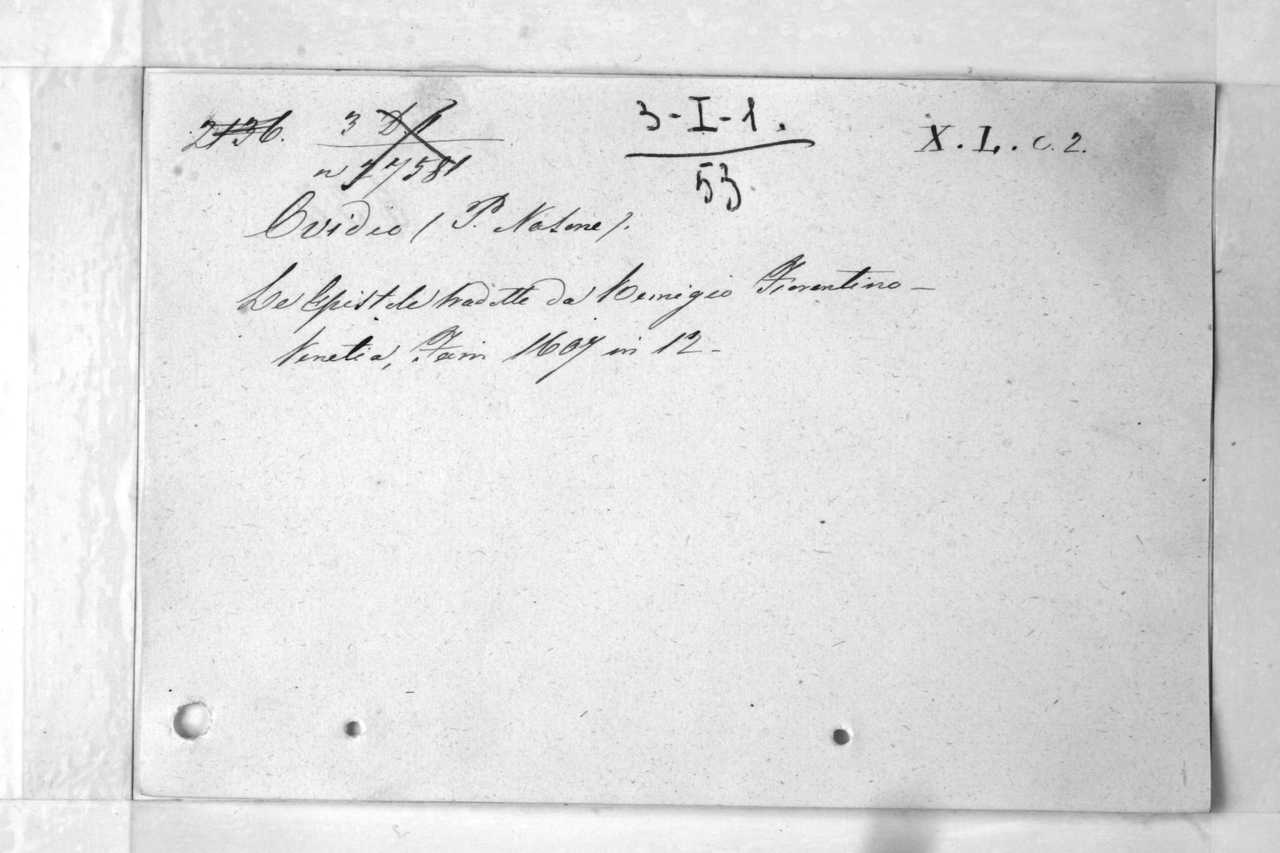 2136. 3 D 1 3-I-1. X. L. c. 2.
n 17581 53
Ovidio (P. Nasone).
Le Epistole tradotte da Remigio Fiorentino –
Venetia, 1607 in 12 –